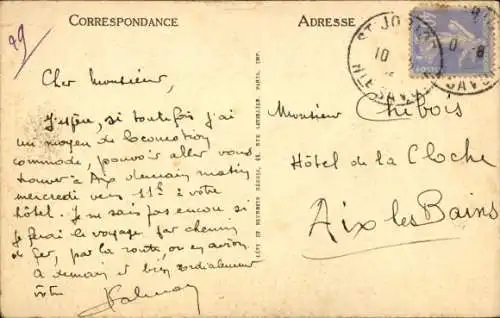 CORRESPONDANCE
ADRESSE
29
ST JO
10
HTE SAVOIE
Cher Monsieur,
J'espère, si toutefois j'ai
un moyen de locomotion
commode, pouvoir aller vous
trouver à Aix demain matin
mercredi vers 11h à votre
hôtel. Je ne sais pas encore si
je ferai le voyage par chemin
de fer, par la route, ou en avion.
A demain et bien cordialement
vôtre
Monsieur Chibois
Hôtel de la Cloche
Aix les Bains